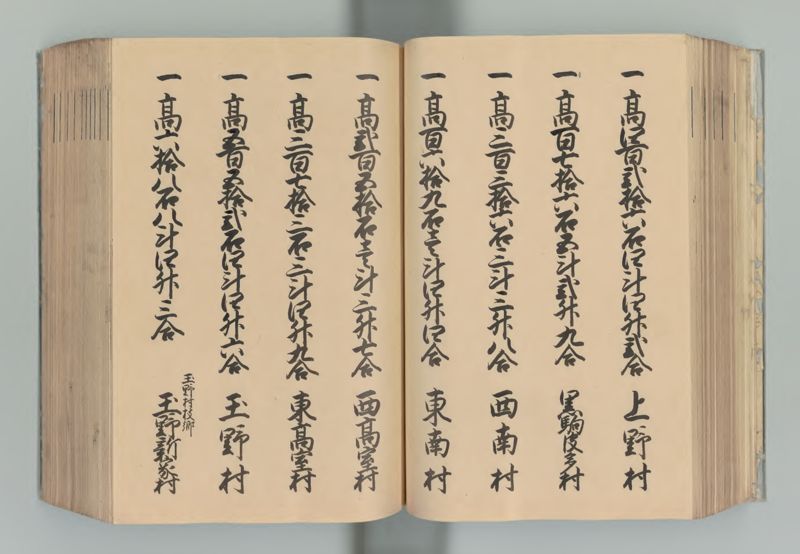 一 高四百弐拾六石四斗四升弐合 上野村
一 高百七拾六石五斗弐升九合 黒駒
一 高三百三拾六石三斗三升八合 西南村
一 高百六拾九石壱斗四升四合 東南村
一 高弐百五拾石壱斗三升七合 西高室村
一 高三百七拾三石三斗四升九合 東高室村
一 高五百五拾弐石四斗四升六合 玉野村
一 高六拾八石八斗四升三合 玉野村枝郷 玉野新家村